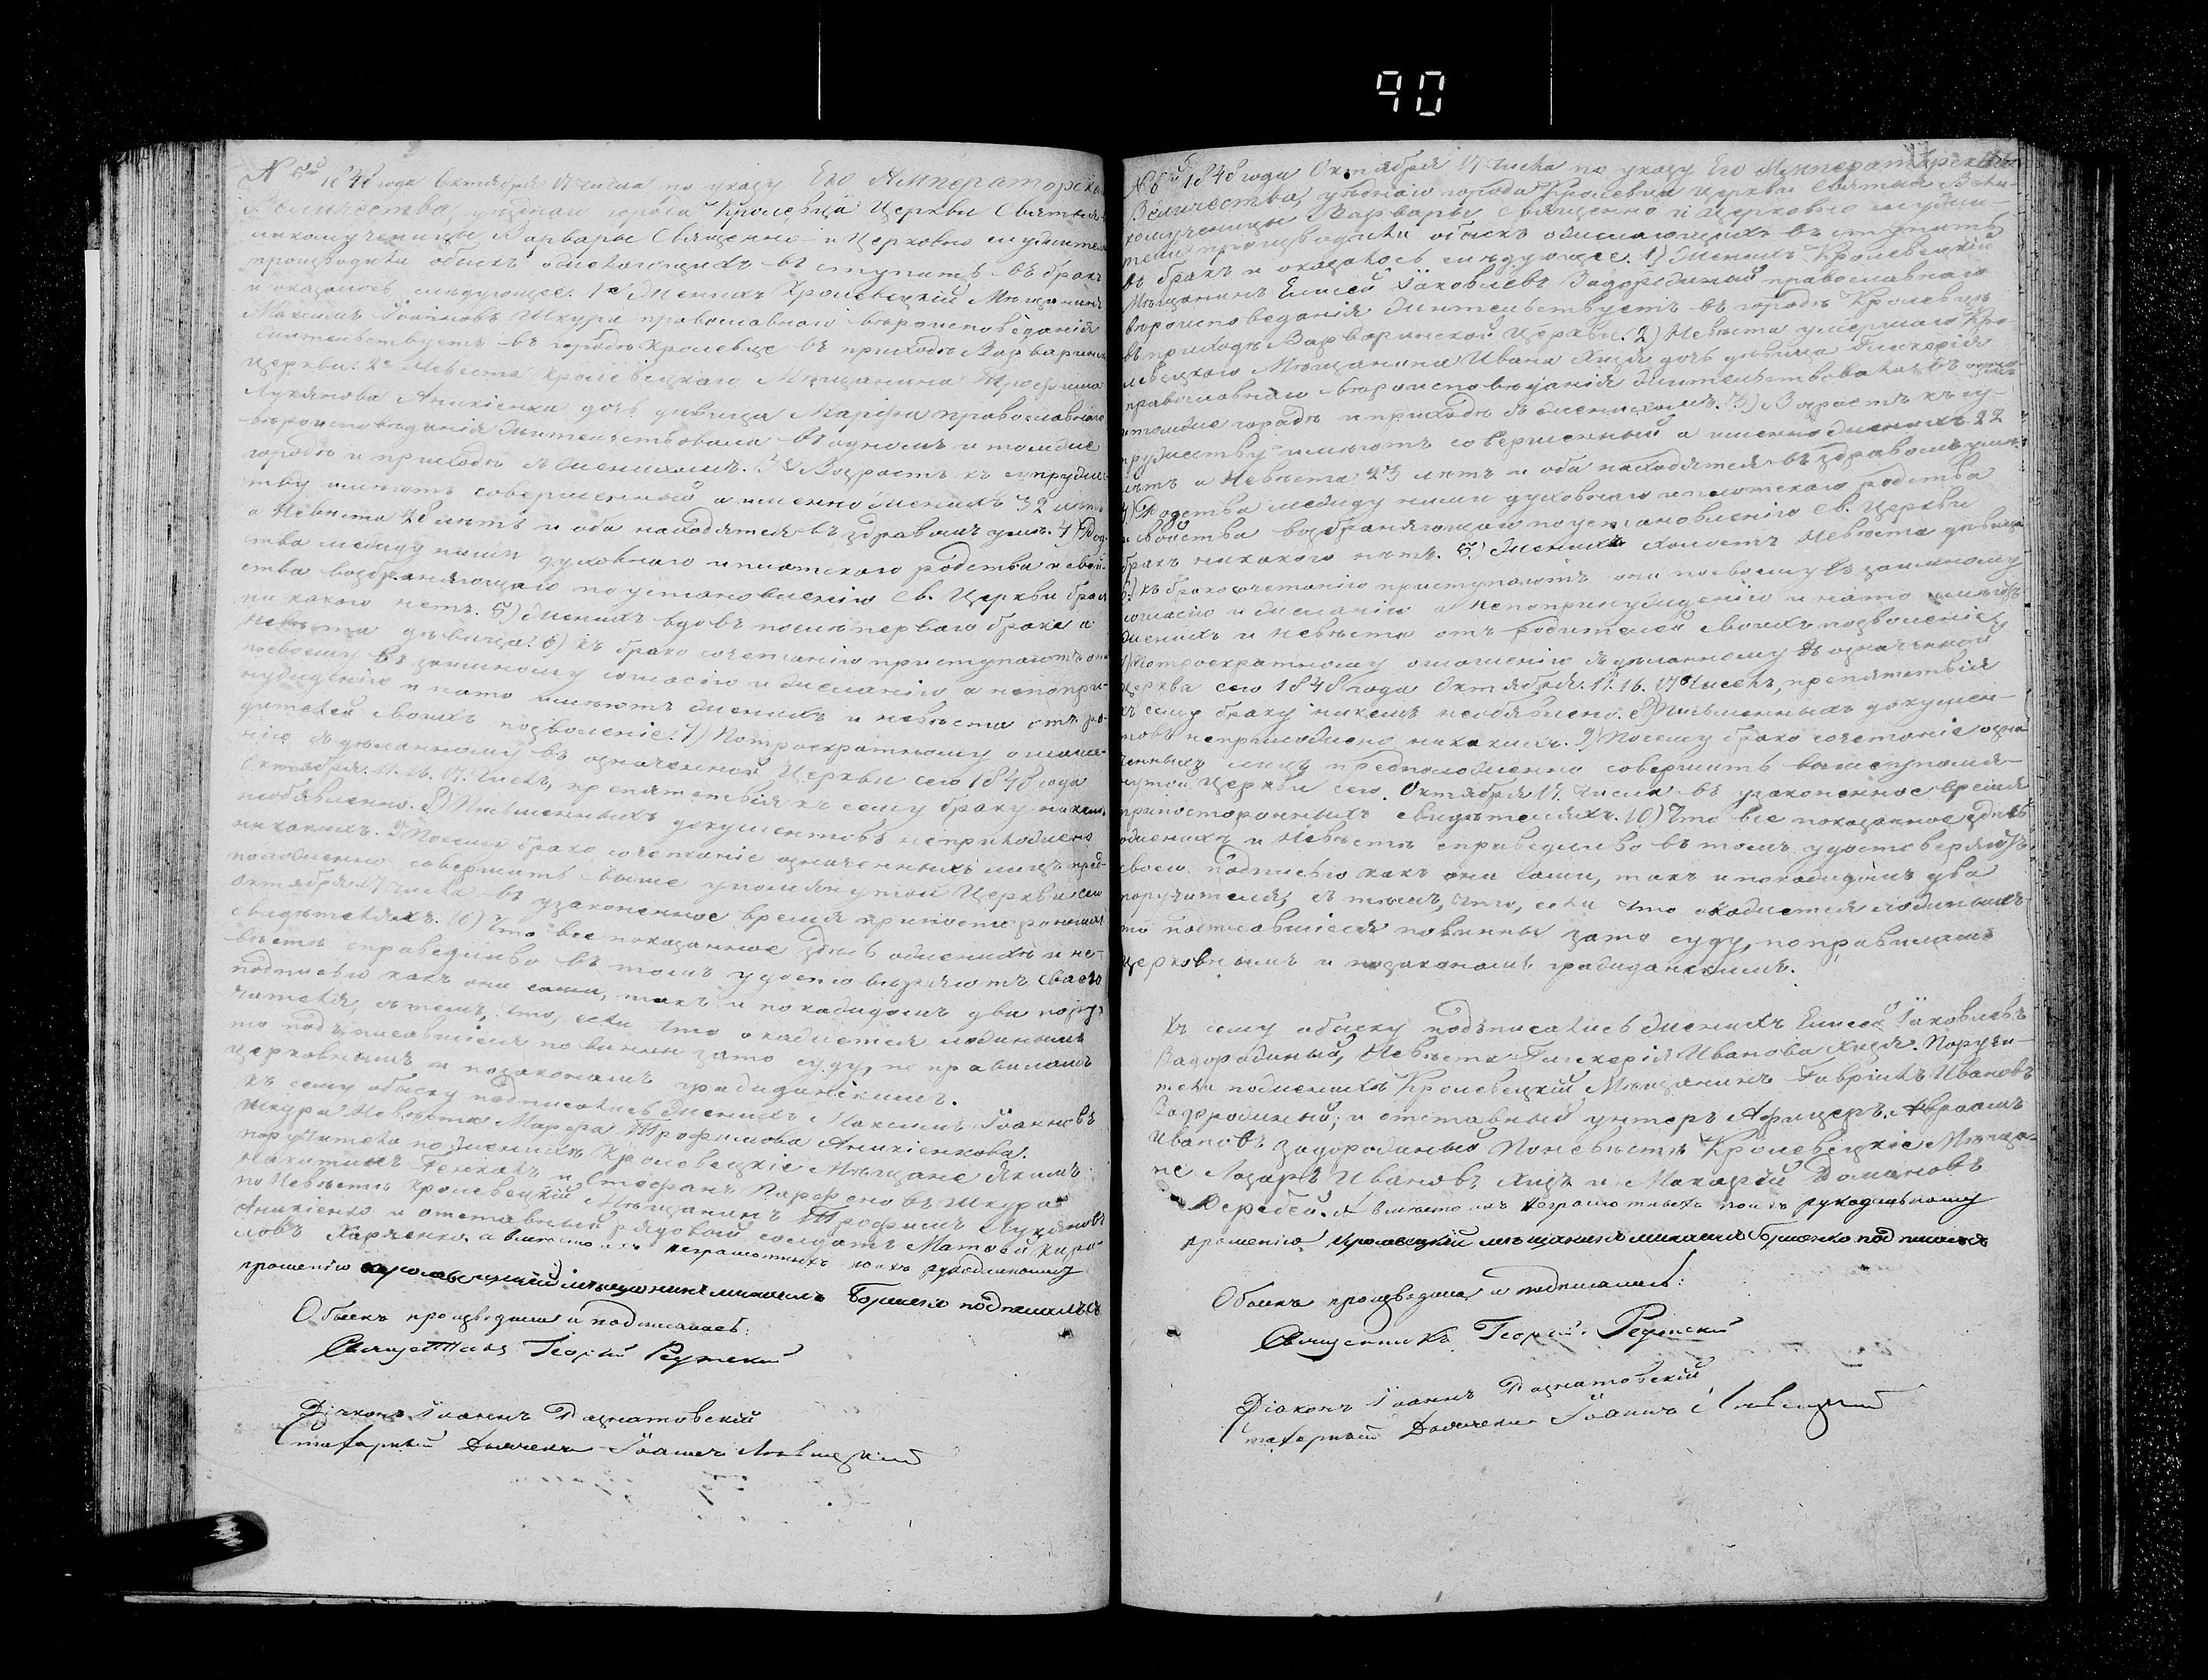 90
N 5й 1848 года Октября 17 числа по указу Его Императорска
Величества, уезднаго города Кролевца Церкви Святыя
ликомученицы Варвары Священно- и Церковно служители
производили обыскъ о желающихъ въ ступить въ бракъ
и оказалось следующее. 1е Женихъ Кролевецкій Мещанинъ
Максимъ Іоанновъ Шкура православнаго вероисповеданія
жительствуетъ въ городе Кролевце въ приходе Варваринск
церкви. 2е Невеста Кролевецкаго Мещанина Трофима
Лукянова Аникіенка дочь девица Марфа православнаго
вероисповеданія жительствовала въ одномъ и томже
городе и приходе съ женихомъ. 3е Возрастъ къ супружес
тву имеютъ совершенный а именно женихъ 32 летъ
а Невеста 20 летъ и оба находятся въ здравомъ уме. 4) Род
ства между ними духовнаго и плотскаго родства и свой-
ства возбраняющаго по установленію Св. Церкви бракъ
ни какого нетъ. 5) Женихъ вдовъ после перваго брака а
Невеста девица. 6) къ брако сочетанію приступаютъ он
по своему въ заимному согласію и желанію а непопри-
нужденію и на то имеютъ женихъ и невеста отъ ро-
дителей своихъ позволеніе. 7) По троекратному оглаше-
нію сделанному въ означенной Церкви сего 1848 года
Октября. 11. 16. 17. Числъ, препятствія къ сему браку никемъ
необявлено. 8) Письменныхъ документовъ неприложено
никакихъ. 9) Посему брако сочетаніе означенныхъ лицъ пред-
положенно совершить выше упомянутой Церкви сего
Октября 17 числа въ узаконенное время припостороннихъ
свидетеляхъ. 10) Что все показанное здесь о женихе и не-
весте справедливо въ томъ удостоверяютъ своею
подписью какъ они сами, такъ и покаждомъ два пору-
чителя, съ темъ, что, если что окажется ложнымъ
то подъписавшіеся повинны зато суду, по правиламъ
церковнымъ и позаконамъ гражданскимъ.
къ сему обыску подписались женихъ Максимъ Іоанновъ
Шкура Невеста Марфа Трофимова Аникіенкова.
поручители по женихе Кролевецкіе Мещане Якимъ
Никитинъ Генкалъ и Стефанъ Парфеновъ Шкура
по Невесте Кролевецкій Мещанинъ Трофимъ Лукяновъ
Аникіенко и отставный рядовый солдатъ Матвей Кири-
ловъ Харченко. а вместо ихъ неграмотныхъ поихъ рукоданному
прошенію кролевецкий мещанинъ михаилъ Борщенко подписался
Обыскъ производили и подписались:
Священникъ Георгій Редтскій
Діаконъ Іоаннъ Разнатовскій
Стихарный Дьячекъ Іоаннъ Левицкій
N 6й 1848 года Октября 17 числа по указу Его Императорскаго
Величества, уезднаго города Кролевца церкви Святыя Вели-
комученицы Варвары священно и церковно служи-
тели производили обыскъ о желающихъ въ ступить
въ бракъ и оказалось следующее. 1) Женихъ Кролевецкій
Мещанинъ Елисей Іаковлевъ Задорожный православнаго
вероисповеданія жительствуетъ въ городе Кролевце
въ приходе Варваринской Церкви. 2) Невеста умершаго Кро-
левецкаго Мещанина Ивана Хиця дочь девица Гликерія
православнаго вероисповеданія жительствовала въ одномъ
и томже городе и приходе съ женихомъ. 3) Возрастъ къ су-
пружеству имеютъ совершенный а именно женихъ 22
летъ а Невеста 23 летъ и оба находятся въ здравомъ уме.
4) Родства между ними духовнаго и плотскаго родства
и свойства возбраняющаго по установленію Св. Церкви
бракъ никакого нетъ. 5) Женихъ холостъ Невеста девица
6) къ брако сочетанію приступаютъ они по своему въ заимному
согласію и желанію а непопринужденію и нато имеютъ
женихъ и невеста отъ родителей своихъ позволеніе,
7) Потроекратному оглашенію сделанному въ означенной
церкви сего 1848 года Октября. 11. 16. 17 Числъ, препятствія
къ сему браку никемъ необявлено. 8) Письменныхъ докумен-
товъ неприложено никакихъ. 9) Посему брако сочетаніе озна
ченныхъ лицъ предположенно совершить вышеупомя-
нутой Церкви сего. Октября 17. числа въ узаконенное время
припостороннихъ свидетеляхъ. 10) Что все показанное здесь
о женихе и Невесте справедливо въ томъ удостоверяютъ
своею подписью какъ они сами, такъ и покаждомъ два
поручителя, съ темъ, что, если что окажется ложнымъ
то подписавшіеся повинны зато суду, поправиламъ
церковнымъ и позаконамъ гражданскимъ.
къ сему обыску подъписались женихъ Елисей Іаковлевъ
Задорожный, Невеста Гликерія Иванова Хиця. Поручи-
тели поженихе Кролевецкій Мещанинъ Гавріилъ Ивановъ
Задорожный; и отставный унтеръ Афицеръ, Авраамъ
Ивановъ задорожный Поневесте Кролевецкіе Меща-
не Лазарь Ивановъ Хицъ и Макарій Домановъ
Деребей. А вместо ихъ неграмотныхъ поихъ рукоданному
прошенію Кролевецкий мещанинъ михаилъ Борщенко подписался
Обыскъ производили и подписались:
Священникъ Георгій Редтскій
Діаконъ Іоаннъ Разнатовскій
Стихарный Дьячекъ Іоаннъ Левицкій